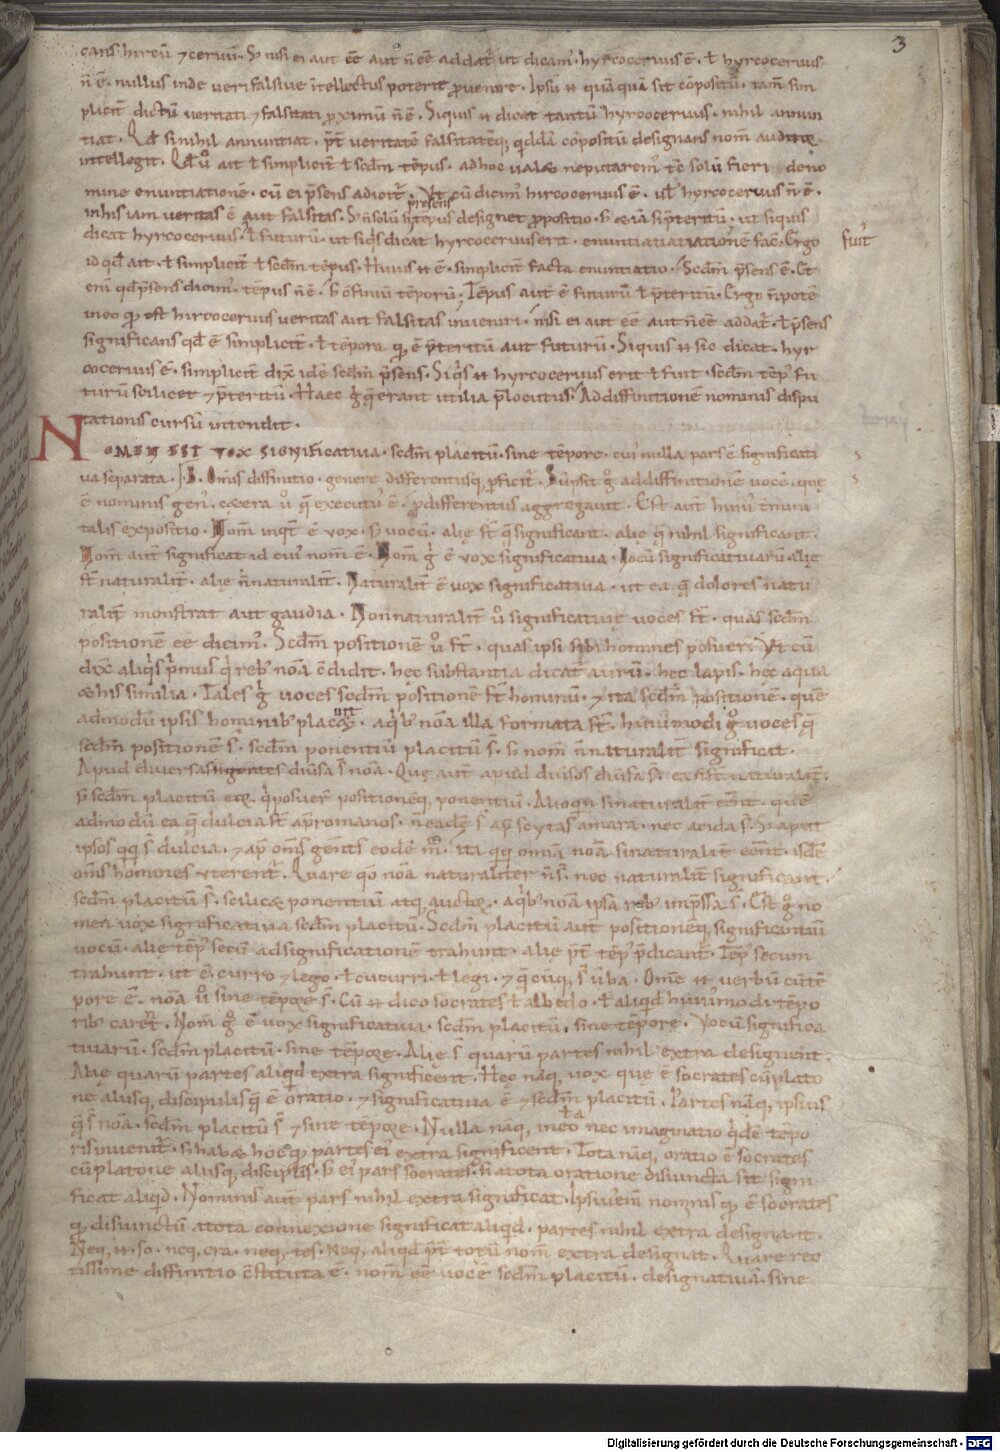 3
cans hircū & cervū. S; nisi ei aut eē aut n̄ eē addat̄ ut dicam' hyrcocervus ē. ł hyrcocervus
n̄ ē. nullus inde veri falsive ītellectus poterit pvenire. Ipsū &̄ quā quā sit cōpositū. tam̄ sim
plicit̄ dictū veritati & falsitati pximū n̄ ē. Siquis &̄ dicat tantū hyrcocervus. nihil annun
tiat. Qd̄ si nihil annuntiat. p̄t̄ veritatē falsitatēq; qddā cōpositū designans nom̄ auditor
intellegit. Qd̄ v̊ ait ł simplicit̄ ł scdm̄ tēpus. ad hoc valet ne putarem' tc̄ solū fieri de no
mine enuntiationē. cū ei p̄sens adicit̄. Ut cū dicim' hircocervus ē. vł hyrcocervus n̄ ē.
in his iam veritas ē aut falsitas. S; n̄ solū si tēpus p̄sens designet ppositio. s; etiā si p̄teritū. ut siquis
dicat hyrcocervus ł futurū. ut siq̄s dicat hyrcocervus erit. enuntiationē fac̄. Ergo
fuit̄
id qd̄ ait. ł simplicit̄ ł scdm̄ tēpus. Huius &̄ ē. simplicit̄ facta enuntiatio. Scdm̄ p̄sens ē. Et
eni qd̄ p̄sens dicim'. tēpus n̄ ē. s; cōfiniū tēporū. Tēpus aut̄ ē futurū ł p̄teritū. Ergo n̄ potē
in eo q; est hircocervus veritas aut falsitas inveniri. nisi ei aut eē aut n̄ eē addat̄. ł p̄sens
significans qd̄ ē simplicit̄. ł tēpora q; ē p̄teritū aut futurū. Siquis &̄ sic dicat. hyr
cocervus ē. simplicit̄ dix̄ idē scdm̄ p̄sens. Siq̄s &̄ hyrcocervus erit ł fuit. scdm̄ tēp' fu
turū scilicet & p̄teritū. Haec g̊ q̄ erant utilia p̄locutus. Ad diffinitionē nominis dispu
tationis cursū intendit.
NOMEN EST VOX SIGNIficativa. scdm̄ placitū. sine tēpore. cui' nulla pars ē significati
va separata. Omīs diffinitio. genere differentiisq; pficit̄. Sūpsit g̊ ad diffinitionē vocē. que
ē nominis gen'. cetera v̊ q̄ executur' ē. p differentiis aggregavit. Est aut̄ huius t̄mini
talis expositio. Nom̄ inqt̄ ē vox. s; vocū. alię st̄ q̄ significant. alię q̄ nihil significant.
Nom̄ aut̄ significat id cui' nom̄ ē. Nom̄ g̊ ē vox significativa. Vocū significativarū alię
st̄ naturalit̄. alię n̄ naturalit̄. Naturalit̄ ē vox significativa. ut ea q̄ dolores natu
ralit̄ monstrat aut gaudia. Non naturalit̄ v̊ significativę voces st̄. quas scdm̄
positionē eē dicim'. Scdm̄ positionē v̊ st̄. quas ipsi sibi homines posuer̄. Ut cū
dix̄ aliq̄s p̄mus q̄ reb; nōa ēdidit. hęc substantia dicat̄ aurū. hec lapis. hęc aqua
& his similia. Tales g̊ voces scdm̄ positionē st̄ hominū. & ita scdm̄ positionē. quē
admodū ipsis hominib; placuit. a q̄b; nōa illa formata st̄. huius modi g̊ voces q̄
scdm̄ positionē s̄. scdm̄ ponentiū placitū s̄. s; nom̄ n̄ naturalit̄ significat.
Apud diversas gentes div̄sa s̄ nōa. Quę aut̄ apud div̄sos div̄sa s̄. ea n̄ st̄ naturalit̄.
s; scdm̄ placitū eor̄. q̄ posuer̄ positionēq; ponentiū. Alioqn si naturalit̄ eēnt. quē
admodū ea q̄ dulcia st̄ ap̄ romanos. n̄ eadē s̄ ap̄ scytas amara. nec acida s̄. S; aput
ipsos qq; s̄ dulcia. & ap̄ om̄s gentes eodē m̊. ita qq; omnia nōa si naturalit̄ eēnt. isdē
om̄s homines uterent̄. Quare qm̄ nōa naturaliter n̄ s̄. nec naturalit̄ significant.
scdm̄ placitū s̄. scilicet ponentiū atq; auctor̄. a q̄b; nōa ipsa reb; imp̄ssa s̄. Est g̊ no
men vox significativa scdm̄ placitū. Scdm̄ placitū aut positionēq; significantiū
vocū. alię tēp' secū ad significationē trahunt. alię p̄t̄ tēp' p̄dicant̄. Tēp' secum
trahunt. ut ē. curro & lego. ł cucurri. ł legi. & q̄cūq; s̄ v̄ba. Om̄e &̄ verbū cū tē
pore ē. nōa v̊ sine tēpore s̄. Cū &̄ dico socrates ł albedo. ł aliqd huius modi tēpo
rib; caret̄. Nom̄ g̊ ē vox significativa. scdm̄ placitū. sine tēpore. Vocū significa
tivarū. scdm̄ placitū. sine tēpore. Alię s̄ quarū partes nihil extra designent.
Alię quarū partes aliqd extra significent. Hęc naq; vox quę ē socrates cū plato
ne aliisq; discipulis q̄ ē oratio. & significativa ē & scdm̄ placitū. Partes naq; ipsius
q̄ s̄ nōa. scdm̄ placitū s̄ & sine tēpore. Nulla naq; in eo nec imaginatio q̄dē tēpo
ris invenit̄. s; habet hoc q; partes ei' extra significent. Tota naq; oratio ē socrates
cū platone aliisq; discipłis. s; ei' pars socrates. si a tota oratione disiuncta sit signi
ficat aliqd. Nominis aut̄ pars nihil extra significat. Ipsius enī nominis q; ē socrates
q; disiunctū a tota connexione significat aliqd. partes nihil extra designant.
Neq; &̄. so. neq; cra. neq; tes. Neq; aliqd p̄t̄ totū nom̄ extra designat. Quare rec
tissime diffinitio cōstituta ē. nom̄ eē vocē scdm̄ placitū. designativā. sine
Digitalisierung gefördert durch die Deutsche Forschungsgemeinschaft - DFG